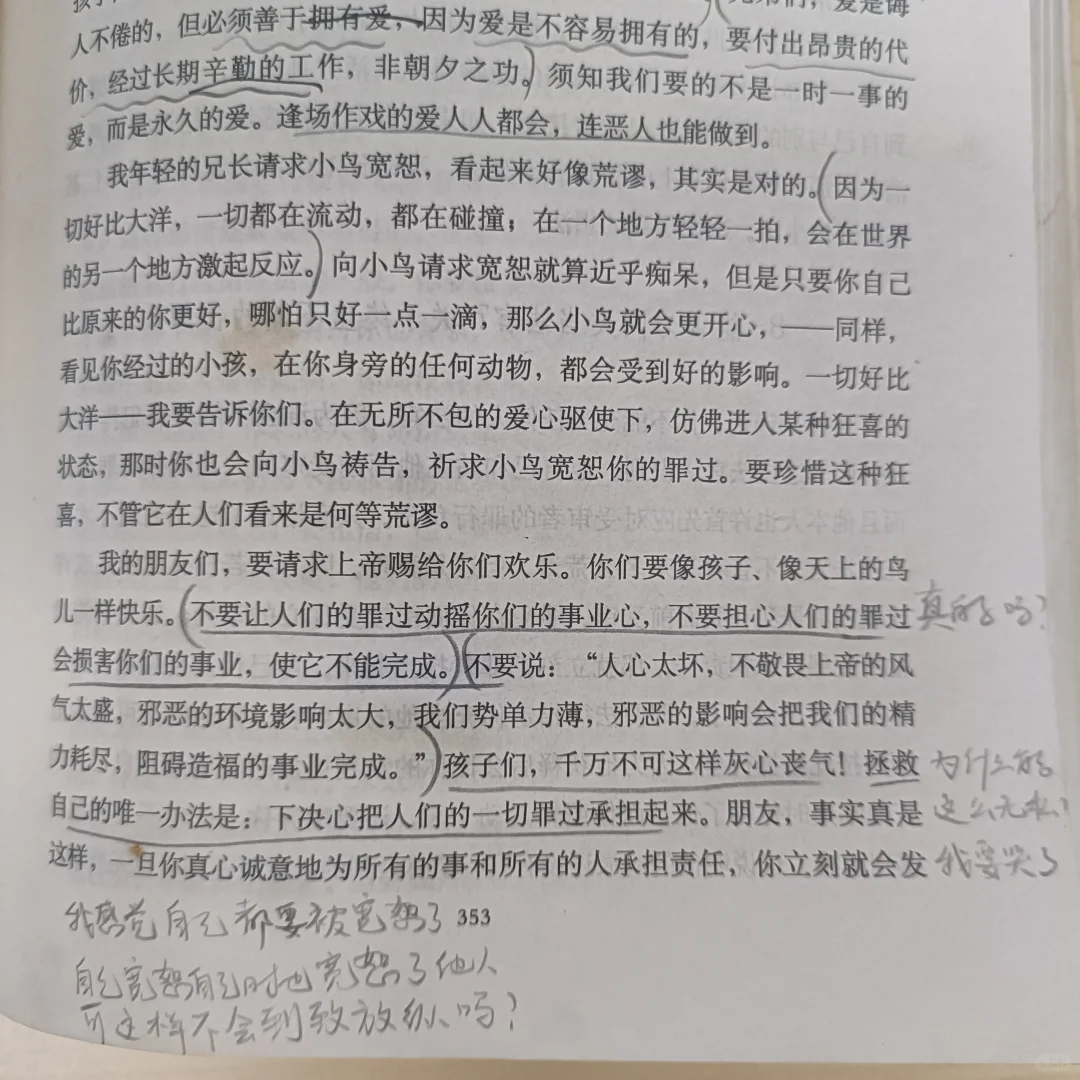 兄弟们，爱是诲
人不倦的，但必须善于拥有爱，因为爱是不容易拥有的，要付出昂贵的代
价，经过长期辛勤的工作，非朝夕之功。须知我们要的不是一时一事的
爱，而是永久的爱。逢场作戏的爱人人都会，连恶人也能做到。
我年轻的兄长请求小鸟宽恕，看起来好像荒谬，其实是对的。因为一
切好比大洋，一切都在流动，都在碰撞；在一个地方轻轻一拍，会在世界
的另一个地方激起反应。向小鸟请求宽恕就算近乎痴呆，但是只要你自己
比原来的你更好，哪怕只好一点一滴，那么小鸟就会更开心，——同样，
看见你经过的小孩，在你身旁的任何动物，都会受到好的影响。一切好比
大洋——我要告诉你们。在无所不包的爱心驱使下，仿佛进入某种狂喜的
状态，那时你也会向小鸟祷告，祈求小鸟宽恕你的罪过。要珍惜这种狂
喜，不管它在人们看来是何等荒谬。
我的朋友们，要请求上帝赐给你们欢乐。你们要像孩子、像天上的鸟
儿一样快乐。不要让人们的罪过动摇你们的事业心，不要担心人们的罪过
真的吗？
会损害你们的事业，使它不能完成。不要说：“人心太坏，不敬畏上帝的风
气太盛，邪恶的环境影响太大，我们势单力薄，邪恶的影响会把我们的精
力耗尽，阻碍造福的事业完成。”孩子们，千万不可这样灰心丧气！拯救
为什么能
自己的唯一办法是：下决心把人们的一切罪过承担起来。朋友，事实真是
这样，一旦你真心诚意地为所有的事和所有的人承担责任，你立刻就会发
我要哭了
我感觉自己都要被宽恕了
353
自己宽恕自己时也宽恕了他人
可这样不会到致放纵吗？